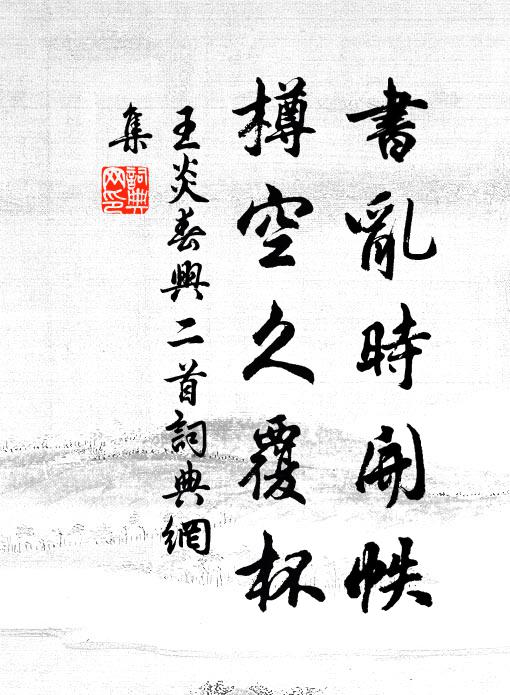 書亂時開帙
樽空久覆杯
王炎春興二首詞典網
集
詞典
网印